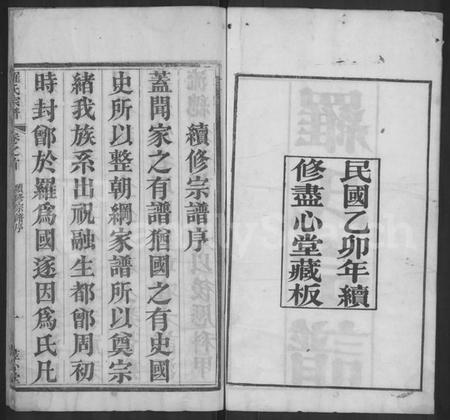 民國乙卯年續
修盡心堂藏板
續修宗譜序
蓋聞家之有譜猶國之有史國
史所以整朝綱家譜所以奠宗
緒我族系出祝融生都鄶周初
時封鄶於羅爲國遂因爲氏凡
羅氏宗譜
卷之首
續修宗譜序
一